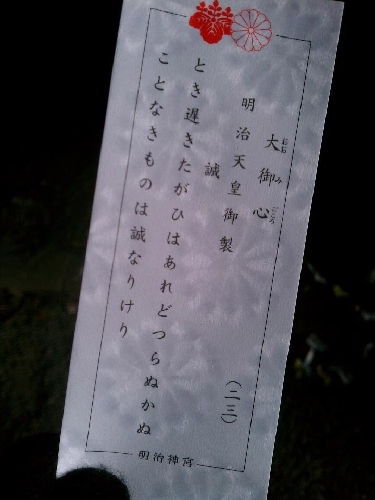 大御心
おおみごころ
明治天皇御製
誠
とき遅きたがひはあれどつらぬかぬ
ことなきものは誠なりけり
（二三）
明治神宮